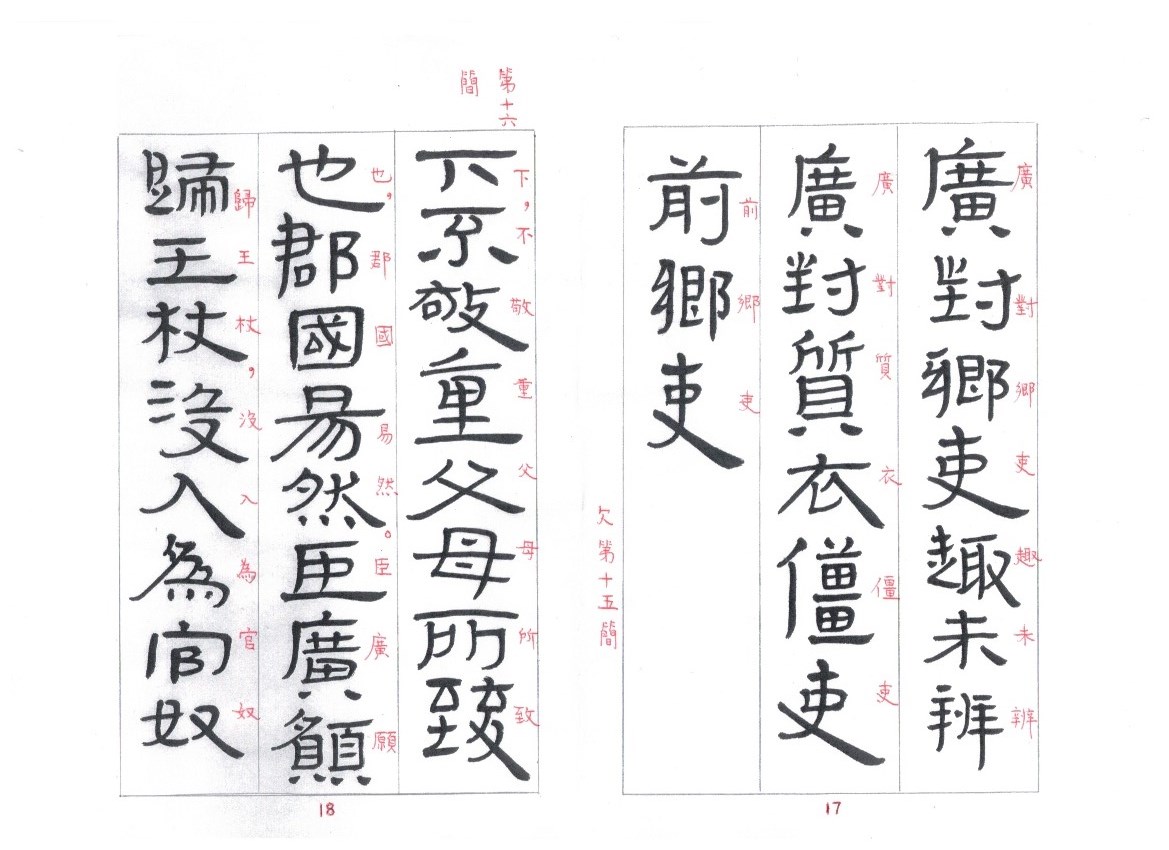 廣對鄉吏趣未辨
廣對鄉吏趣未辨
廣對質衣僵吏
廣對質衣僵吏
前鄉吏
前鄉吏
欠第十五簡
17
第十六
簡
下，不敬重父母所致
下不敬重父母所致
也，郡國易然。臣廣願
也郡國易然臣廣願
歸王杖，沒入為官奴
歸王杖沒入為官奴
18